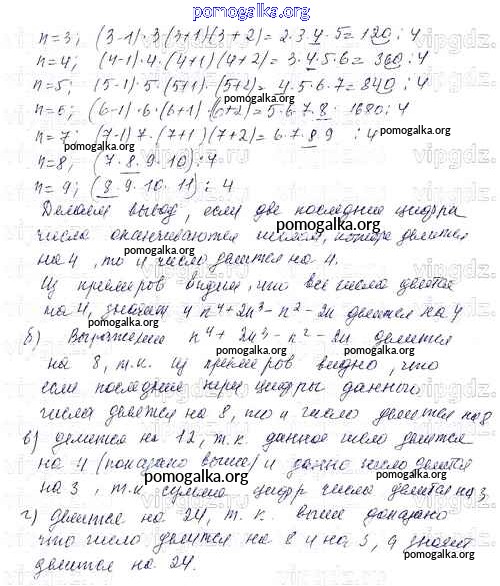 pomogalka.org
n=3; (3-1)·3(3+1)(3+2)=2·3·4·5=120⋮4
n=4; (4-1)·4·(4+1)(4+2)=3·4·5·6=360⋮4
n=5; (5-1)·5·(5+1)·(5+2)=4·5·6·7=840⋮4
n=6; (6-1)·6·(6+1)·(6+2)=5·6·7·8=1680⋮4
n=7; (7-1)7·(7+1)(7+2)=6·7·8·9 ⋮4
n=8; (7·8·9·10)⋮4
n=9; (8·9·10·11)⋮4
Делаем вывод, если две последние цифры
числа оканчиваются числом, которое делится
на 4, то и число делится на 4.
Из примеров видим, что все числа делятся
на 4, значит и n⁴+2n³-n²-2n делится на 4
б) Выражение n⁴+2n³-n²-2n делится
на 8, т.к. из примеров видно, что
если последние три цифры данного
числа делятся на 8, то и число делится на 8
в) делится на 12, т.к. данное число делится
на 4 (показано выше) и данное число делится
на 3, т.к. сумма цифр числа делится на 3
г) делится на 24, т.к. выше доказано
что число делится на 8 и на 3, а значит
делится на 24.
pomogalka.org